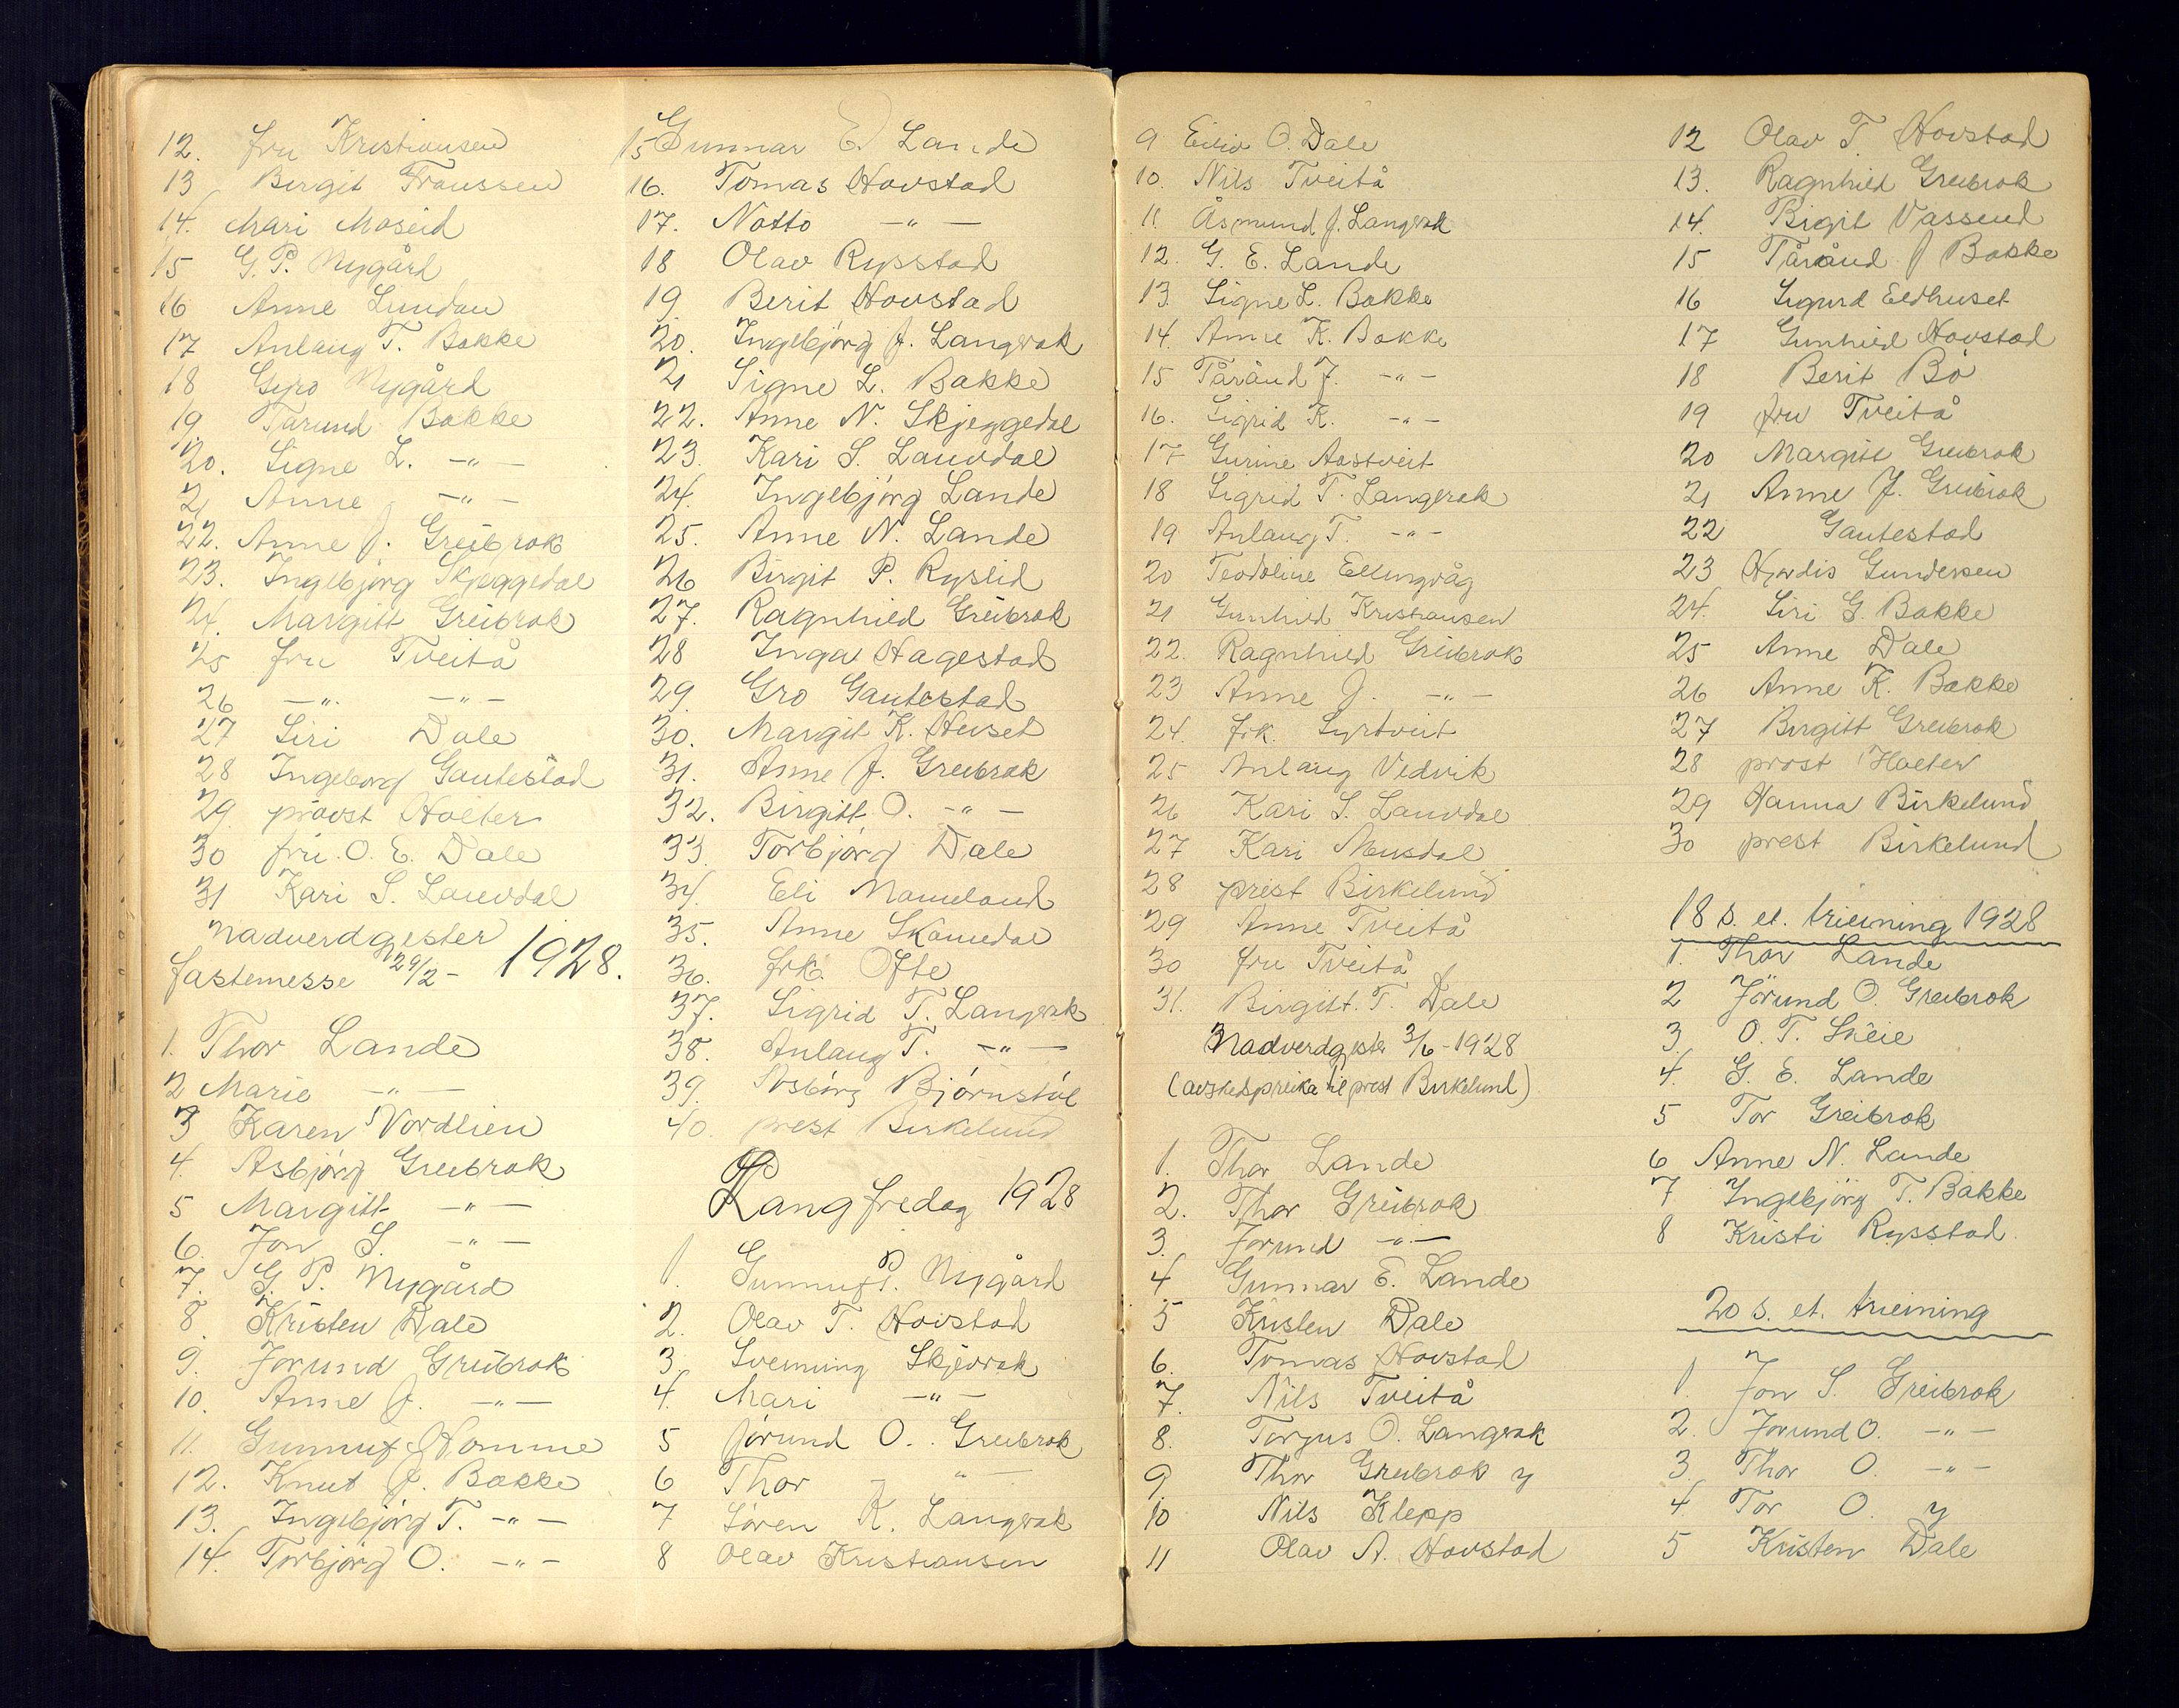 12. fru Kristiansen
13 Birgit Franssen
14. Mari Moseid
15 G. P. Nygård
16 Anne Lundan
17 Anlaug T. Bakke
18 Gyro Nygård
19 Tarund Bakke
20. Signe L. -"-
21 Anne -"-
22. Anne J. Greibrok
23. Ingebjørg Skjeggedal
24. Margitt Greibrok
25 fru Tveitå
26 -"- -"-
27 Siri Dale
28 Ingeborg Gautestad
29 provst Holter
30 fru. O. E. Dale
31 Kari S. Lauvdal
Nadverdgjester
fastemesse 29/2 - 1928.
1. Thor Lande
2 Marie -"-
3 Karen Nordlien
4. Asbjørg Greibrok
5 Margitt -"-
6. Jon S. -"-
7. G. P. Nygård
8. Kristen Dale
9. Jorund Greibrok
10. Anne J. -"-
11. Gunnuf J Homme
12. Knut J. Bakke
13. Ingebjørg T. -"-
14. Torbjörg O. -"-
15 Gunnar E. Lande
16. Tomas Hovstad
17. Notto -"-
18 Olav Rysstad
19. Berit Hovstad
20. Ingebjörg J. Langerak
21 Signe L. Bakke
22. Anne N. Skjeggedal
23. Kari S. Lauvdal
24. Ingebjörg Lande
25. Anne N. Lande
26 Birgit P. Ryslid
27. Ragnhild Greibrok
28 Inga Hagestad
29. Gro Gautestad
30. Margit K. Heiset
31. Anne J. Greibrok
32. Birgitt O. -"-
33. Torbjörg Dale
34. Eli Mameland
35. Anne Skomedal
36. frk. Ofte
37. Sigrid T. Langerak
38. Anlaug T. -"-
39. Asbörg Björnstöl
40. prest Birkelund
Langfredag 1928
1. Gunnuf P. Nygård
2. Olav T. Hovstad
3. Svenning Skjevrak
4. Mari -"-
5 Jörund O. Greibrok
6 Thor - " -
7 Sören K. Langerak
8 Olav Kristiansen
9 Eiliv O. Dale
10. Nils Tveitå
11. Åsmund J. Langerak
12. G. E. Lande
13. Signe L. Bakke
14. Anne K. Bakke
15 Tårånd J. -"-
16. Sigrid K. -"-
17 Gurine Aastveit
18 Sigrid T. Langerak
19 Anlaug T. -"-
20 Teodoline Ellingvåg
21 Gunhild Kristiansen
22. Ragnhild Greibrok
23 Anne J. -"-
24. frk. Syrtveit
25 Anlaug Vedvik
26 Kari S. Lauvdal
27 Kari Meusdal
28 prest Birkelund
29 Anne Tveitå
30 fru Tveitå
31. Birgitt. T. Dale
Nadverdgjester 3/6 - 1928
(avskedspreika til prest Birkelund)
1. Thor Lande
2. Thor Greibrok
3. Jorund -"-
4 Gunnar E. Lande
5 Kristen Dale
6. Tomas Hovstad
7. Nils Tveitå
8. Torgus O. Langerak
9. Thor Greibrok y
10 Nils Klepp
11 Olav A. Hovstad
12 Olav T. Hovstad
13. Ragnhild Greibrok
14. Birgit Vassend
15 Tårånd J Bakke
16 Sigurd Eldhuset
17 Gunhild Hovstad
18 Berit Bö
19 fru Tveitå
20 Margitt Greibrok
21 Anne J. Greibrok
22 Gautestad
23 Hjördis Gundersen
24. Siri G. Bakke
25 Anne Dale
26 Anne K. Bakke
27 Birgitt Greibrok
28 prost Holter
29 Hanna Birkelund
30 prest Birkelund
18 s. et. trieining 1928
1. Thor Lande
2 Jörund O. Greibrok
3. O. T. Skeie
4. G. E. Lande
5 Tor Greibrok
6 Anne N. Lande
7 Ingebjörg T. Bakke
8 Kristi Rysstad.
20 s. et. trieining
1. Jon S. Greibrok
2. Jorund O. -"-
3. Thor O. -"-
4. Tor O. y
5 Kristen Dale